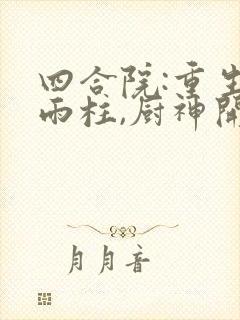 四合院:重生
雨柱,厨神開
月月音